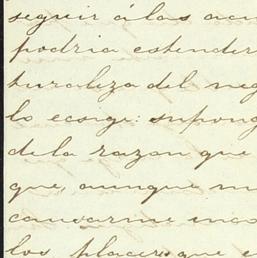 seguir á las acu
podria estender
turaleza del neg
lo ecsige: supong
de la razon que
que, aunque m
causarme mas
los placeres que e